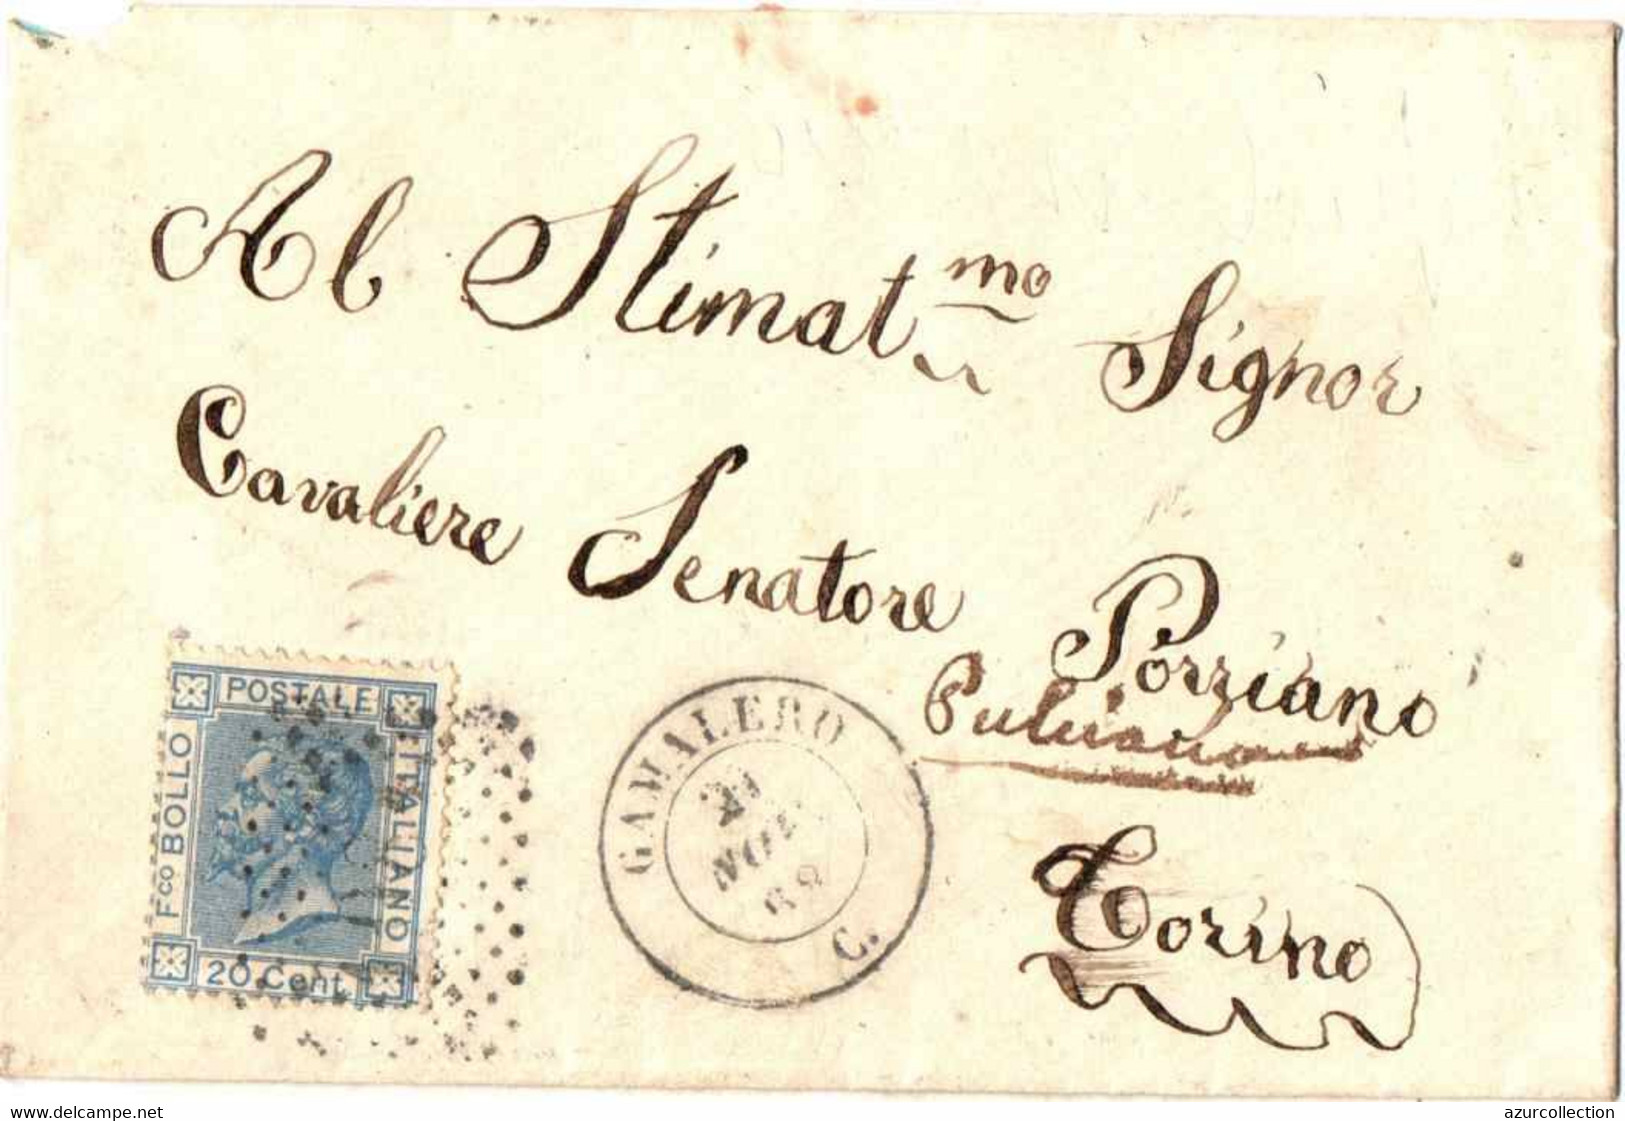 Al Stimat.mo Signor
Cavaliere Senatore Porziano
Torino
POSTALE
ITALIANO
Fco BOLLO
20 Cent.
GAMALERO
NOV
C.
delcampe.net
azurcollection